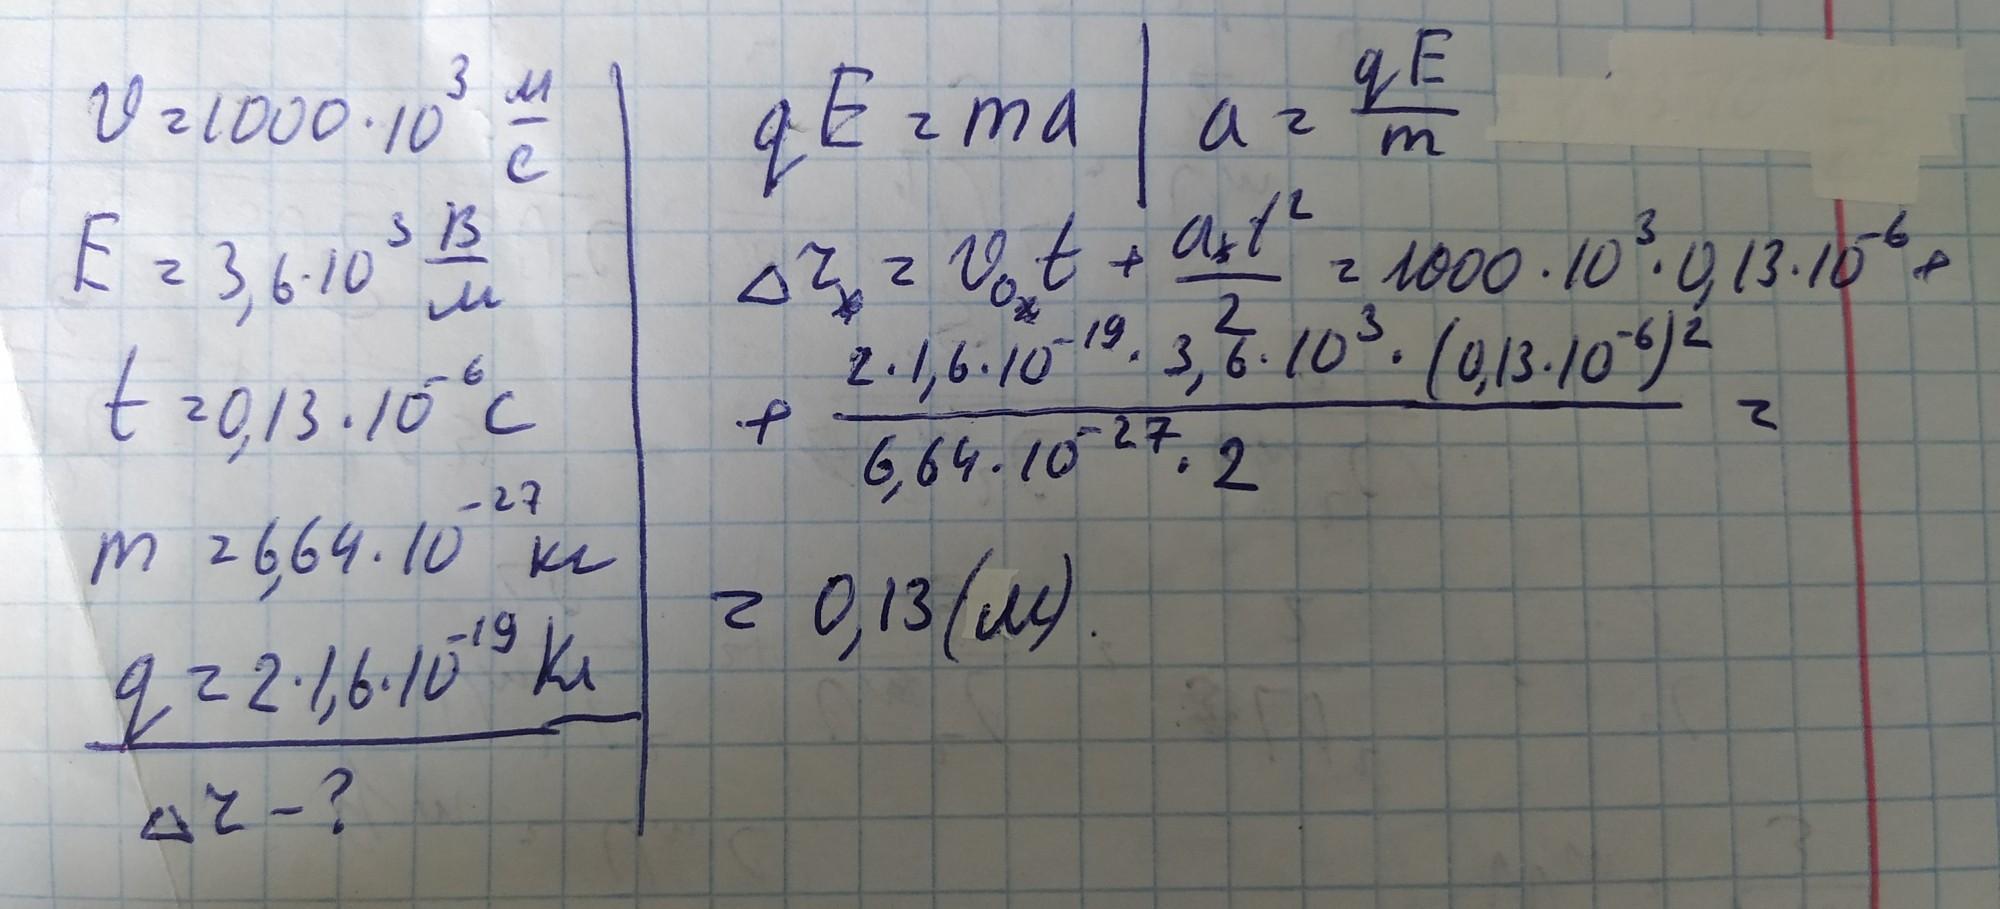 υ = 1000·10³ м/с
E = 3,6·10³ В/м
t = 0,13·10⁻⁶ с
m = 6,64·10⁻²⁷ кг
q = 2·1,6·10⁻¹⁹ Кл
Δr - ?
qE = ma | a = qE/m
Δrₓ = υ₀ₓt + aₓt²/2 = 1000·10³·0,13·10⁻⁶ +
+ 2·1,6·10⁻¹⁹·3,6·10³·(0,13·10⁻⁶)² / 6,64·10⁻²⁷·2 =
= 0,13 (м).